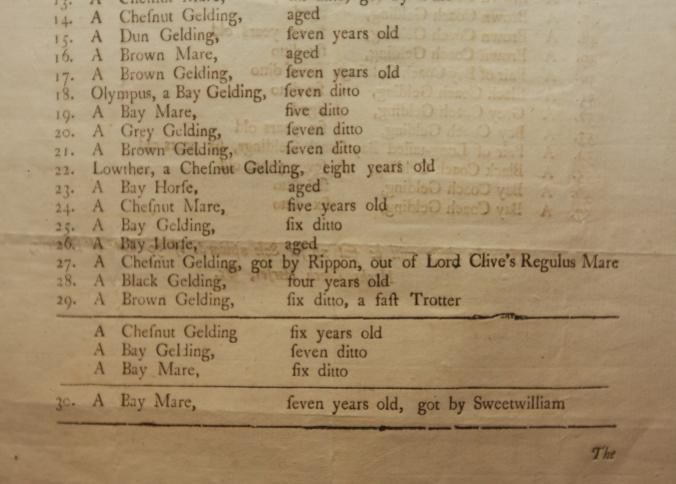 14. A Cheſnut Gelding, aged
15. A Dun Gelding, ſeven years old
16. A Brown Mare, aged
17. A Brown Gelding, ſeven years old
18. Olympus, a Bay Gelding, ſeven ditto
19. A Bay Mare, five ditto
20. A Grey Gelding, ſeven ditto
21. A Brown Gelding, ſeven ditto
22. Lowther, a Cheſnut Gelding, eight years old
23. A Bay Horſe, aged
24. A Cheſnut Mare, five years old
25. A Bay Gelding, ſix ditto
26. A Bay Horſe, aged
27. A Cheſnut Gelding, got by Rippon, out of Lord Clive's Regulus Mare
28. A Black Gelding, four years old
29. A Brown Gelding, ſix ditto, a faſt Trotter
A Cheſnut Gelding ſix years old
A Bay Gelding, ſeven ditto
A Bay Mare, ſix ditto
30. A Bay Mare, ſeven years old, got by Sweetwilliam
The